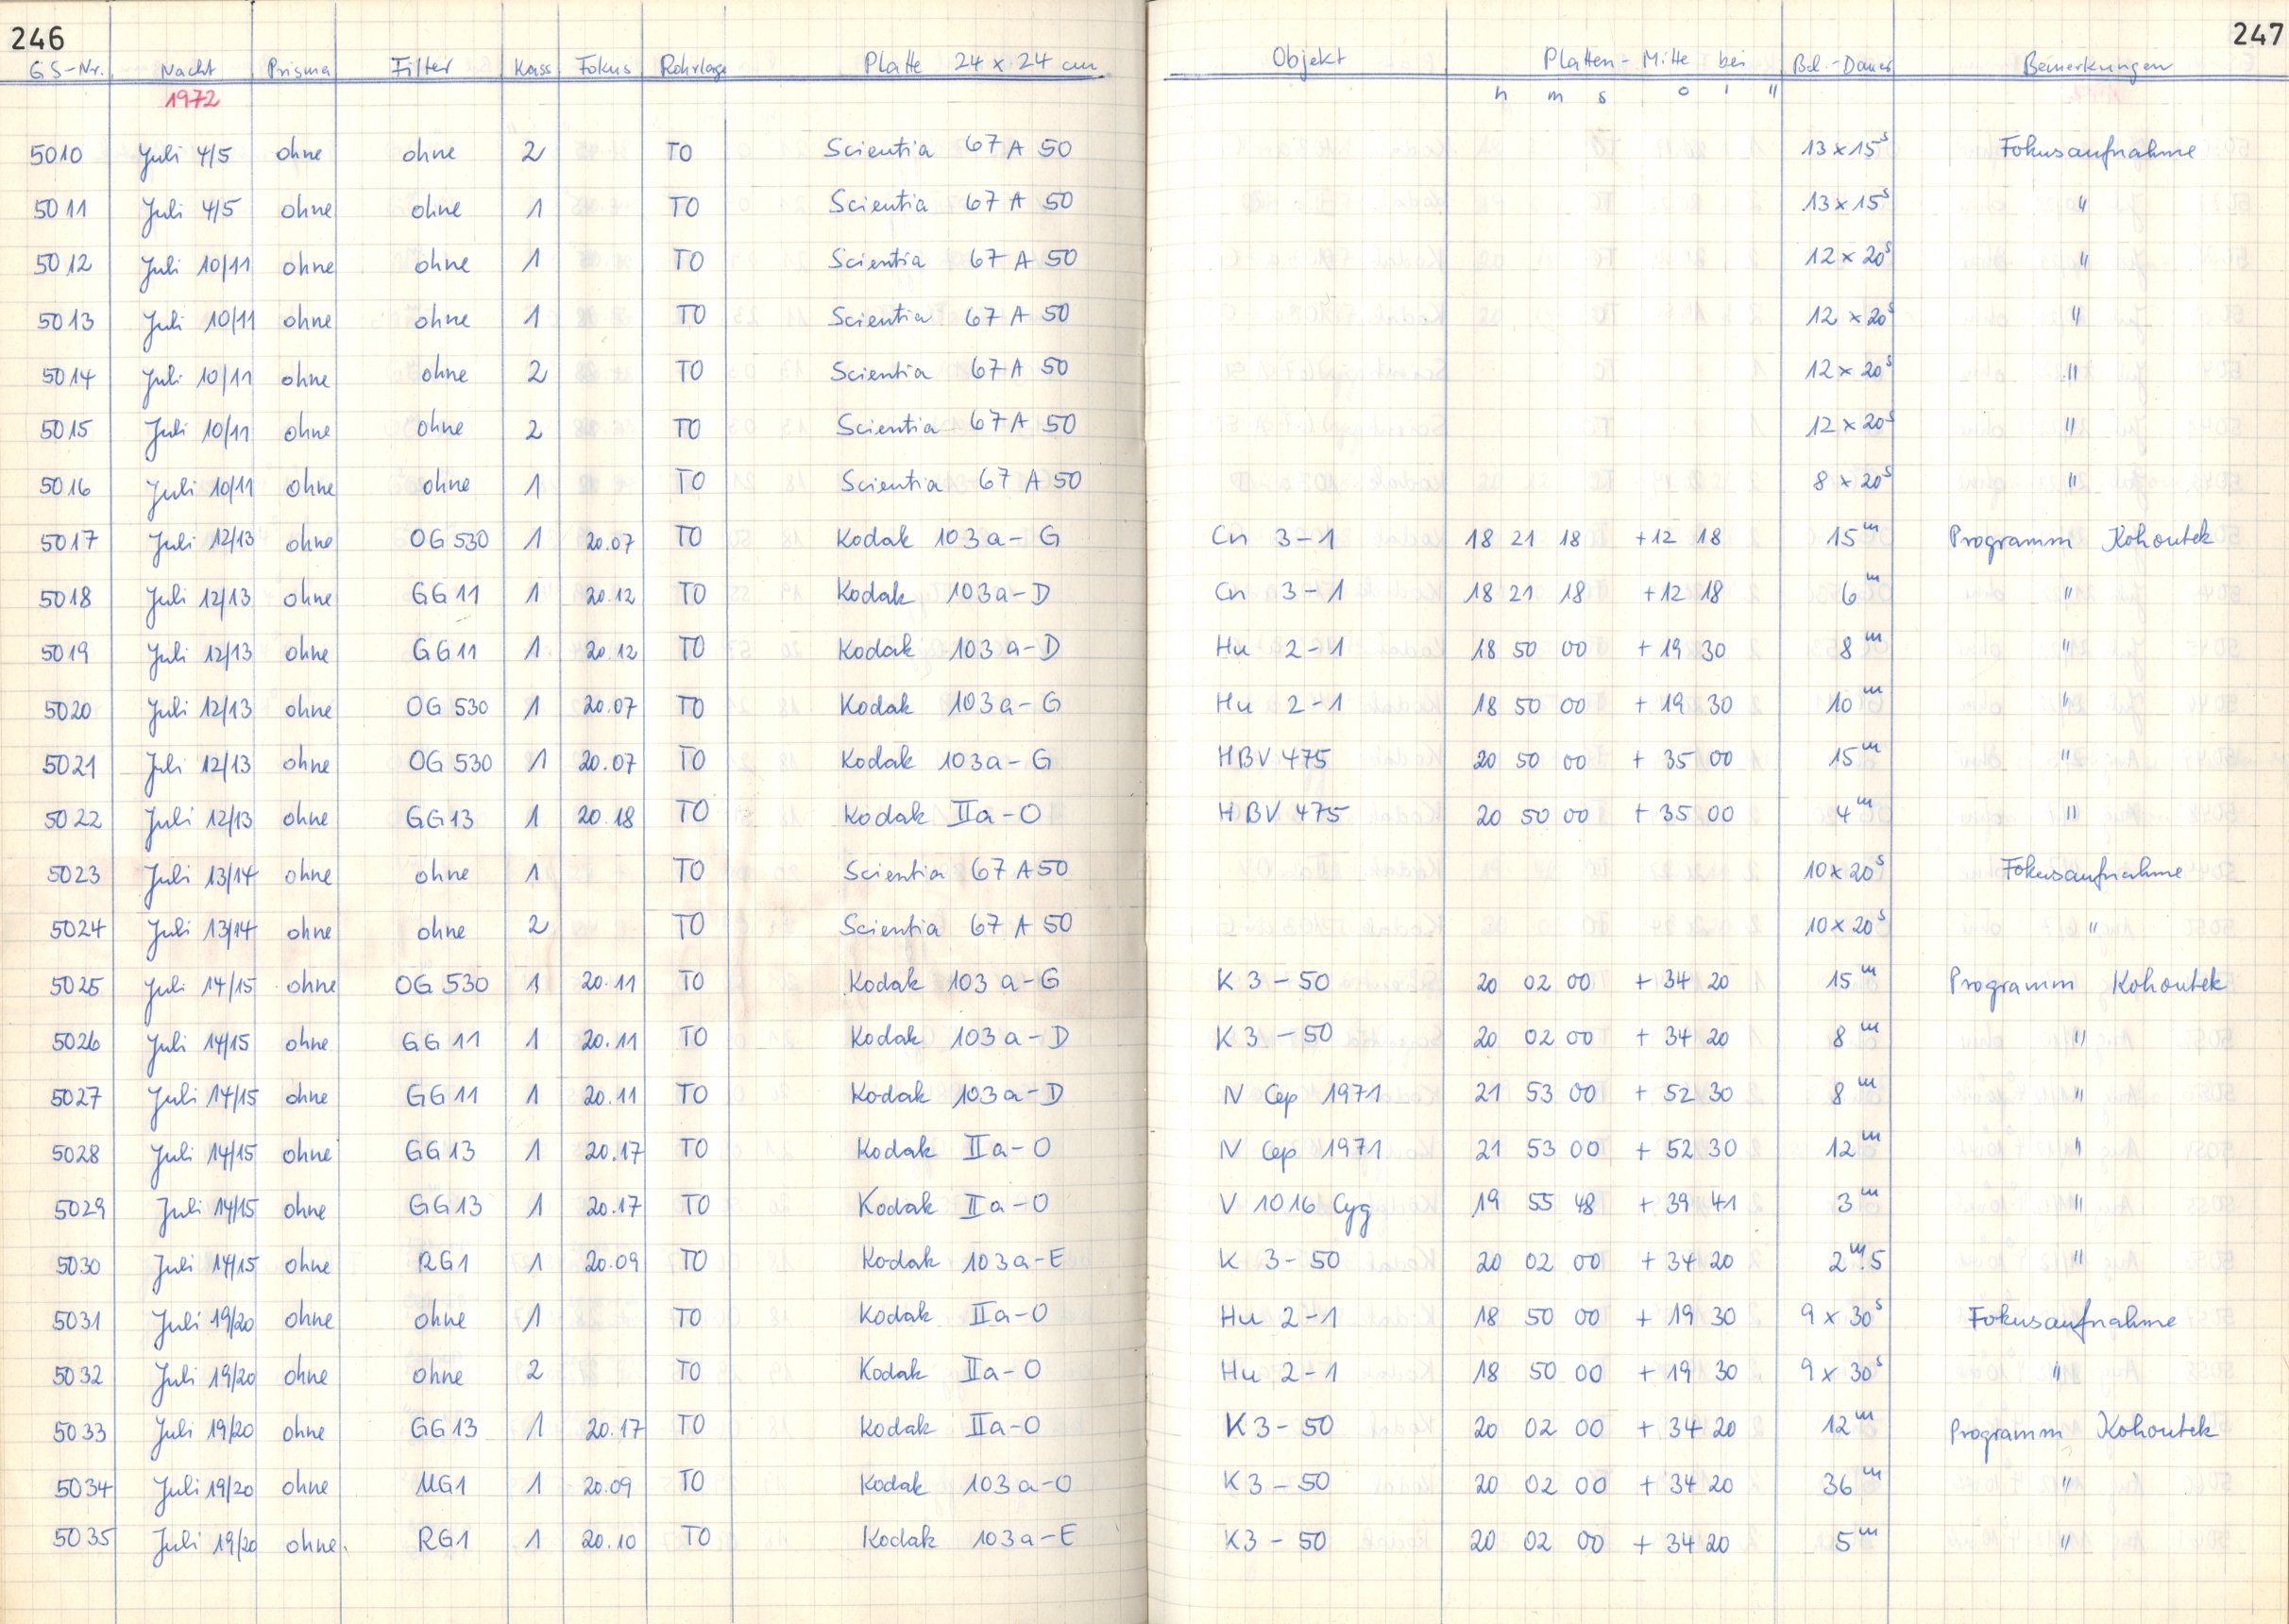 246 247
GS-Nr. Nacht Prisma Filter Kass Fokus Rohrlage Platte 24 x 24 cm Objekt Platten-Mitte bei Bel.-Dauer Bemerkungen
1972 h m s o ' "
5010 Juli 4/5 ohne ohne 2 TO Scientia 67 A 50 13 x 15s Fokusaufnahme
5011 Juli 4/5 ohne ohne 1 TO Scientia 67 A 50 13 x 15s "
5012 Juli 10/11 ohne ohne 1 TO Scientia 67 A 50 12 x 20s "
5013 Juli 10/11 ohne ohne 1 TO Scientia 67 A 50 12 x 20s "
5014 Juli 10/11 ohne ohne 2 TO Scientia 67 A 50 12 x 20s "
5015 Juli 10/11 ohne ohne 2 TO Scientia 67 A 50 12 x 20s "
5016 Juli 10/11 ohne ohne 1 TO Scientia 67 A 50 8 x 20s "
5017 Juli 12/13 ohne OG 530 1 20.07 TO Kodak 103 a-G Cn 3-1 18 21 18 +12 18 15m Programm Kohoutek
5018 Juli 12/13 ohne GG 11 1 20.12 TO Kodak 103 a-D Cn 3-1 18 21 18 +12 18 6m "
5019 Juli 12/13 ohne GG 11 1 20.12 TO Kodak 103 a-D Hu 2-1 18 50 00 +19 30 8m "
5020 Juli 12/13 ohne OG 530 1 20.07 TO Kodak 103 a-G Hu 2-1 18 50 00 +19 30 10m "
5021 Juli 12/13 ohne OG 530 1 20.07 TO Kodak 103 a-G HBV 475 20 50 00 +35 00 15m "
5022 Juli 12/13 ohne GG 13 1 20.18 TO Kodak IIa-O HBV 475 20 50 00 +35 00 4m "
5023 Juli 13/14 ohne ohne 1 TO Scientia 67 A 50 10 x 20s Fokusaufnahme
5024 Juli 13/14 ohne ohne 2 TO Scientia 67 A 50 10 x 20s "
5025 Juli 14/15 ohne OG 530 1 20.11 TO Kodak 103 a-G K 3-50 20 02 00 +34 20 15m Programm Kohoutek
5026 Juli 14/15 ohne GG 11 1 20.11 TO Kodak 103 a-D K 3-50 20 02 00 +34 20 8m "
5027 Juli 14/15 ohne GG 11 1 20.11 TO Kodak 103 a-D N Cep 1971 21 53 00 +52 30 8m "
5028 Juli 14/15 ohne GG 13 1 20.17 TO Kodak IIa-O N Cep 1971 21 53 00 +52 30 12m "
5029 Juli 14/15 ohne GG 13 1 20.17 TO Kodak IIa-O V 1016 Cyg 19 55 48 +39 41 3m "
5030 Juli 14/15 ohne RG1 1 20.09 TO Kodak 103 a-E K 3-50 20 02 00 +34 20 2m.5 "
5031 Juli 19/20 ohne ohne 1 TO Kodak IIa-O Hu 2-1 18 50 00 +19 30 9 x 30s Fokusaufnahme
5032 Juli 19/20 ohne ohne 2 TO Kodak IIa-O Hu 2-1 18 50 00 +19 30 9 x 30s "
5033 Juli 19/20 ohne GG 13 1 20.17 TO Kodak IIa-O K 3-50 20 02 00 +34 20 12m Programm Kohoutek
5034 Juli 19/20 ohne UG1 1 20.09 TO Kodak 103 a-O K 3-50 20 02 00 +34 20 36m "
5035 Juli 19/20 ohne RG1 1 20.10 TO Kodak 103 a-E K3-50 20 02 00 +34 20 5m "